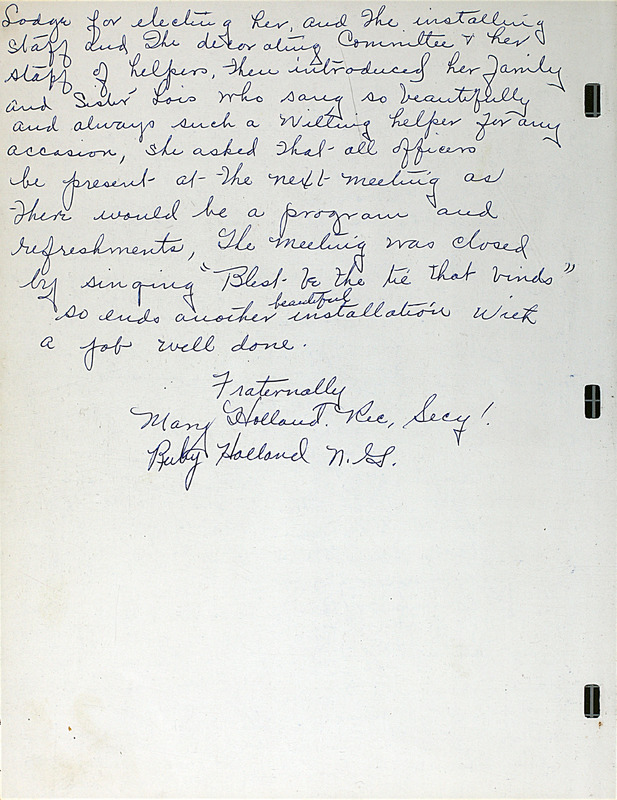 Lodge for electing her, and the installing
staff and The decorating Committee & her
staff of helpers, then introduced her family
and Sister Lois who sang so beautifully
and always such a willing helper for any
accasion, she asked that all officers
be present at the next meeting as
there would be a program and
refreshments, The meeting was closed
by singing "Blest be the tie that binds"
beautiful
so ends another installation with
a job well done.
Fraternally
Mary Holland. Rec, Secy!
Ruby Holland N.G.